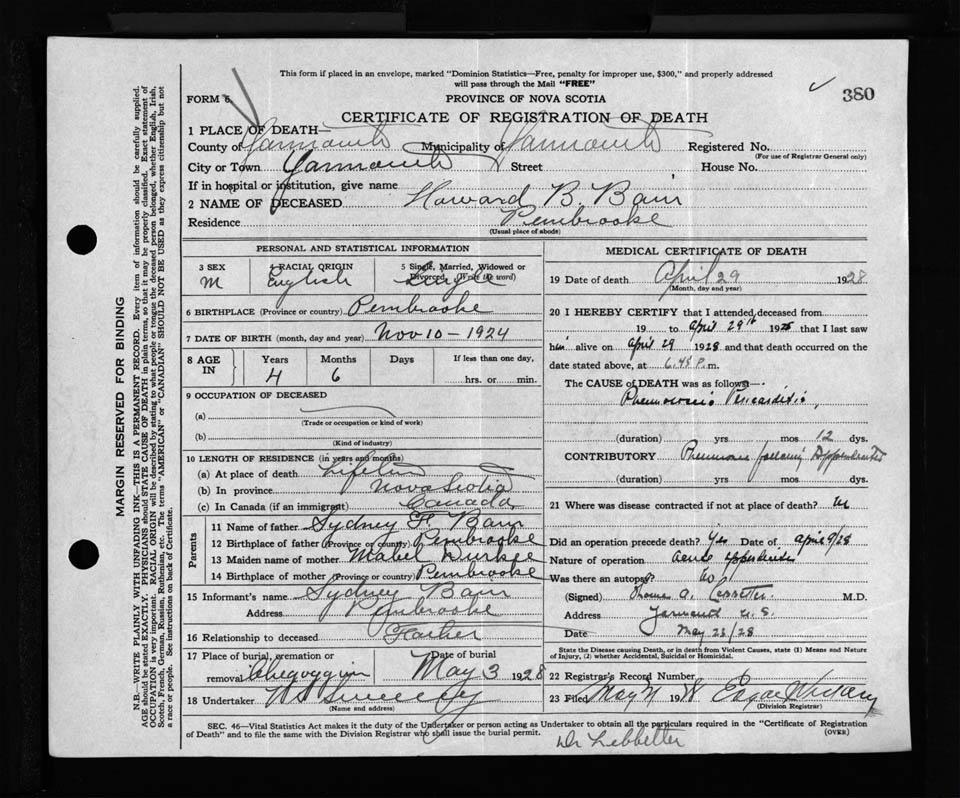 This form if placed in an envelope, marked "Dominion Statistics—Free, penalty for improper use, $300," and properly addressed
will pass through the Mail "FREE"
FORM 6. PROVINCE OF NOVA SCOTIA 380
CERTIFICATE OF REGISTRATION OF DEATH
1 PLACE OF DEATH—
County of Yarmouth Municipality of Yarmouth Registered No.
(For use of Registrar General only)
City or Town Yarmouth Street House No.
If in hospital or institution, give name
2 NAME OF DECEASED Howard B. Bain
Residence Pembrooke
(Usual place of abode)
PERSONAL AND STATISTICAL INFORMATION
3 SEX 4 RACIAL ORIGIN 5 Single, Married, Widowed or
Divorced, (Write the word)
M English Single
6 BIRTHPLACE (Province or country) Pembrooke
7 DATE OF BIRTH (month, day and year) Nov 10 – 1924
8 AGE IN Years Months Days If less than one day,
4 6 hrs. or min.
9 OCCUPATION OF DECEASED
(a)
(Trade or occupation or kind of work)
(b)
(Kind of industry)
10 LENGTH OF RESIDENCE (in years and months)
(a) At place of death Lifetime
(b) In province Nova Scotia
(c) In Canada (if an immigrant) Canada
Parents
11 Name of father Sydney F. Bain
12 Birthplace of father (Province or country) Pembrooke
13 Maiden name of mother Mabel Durkee
14 Birthplace of mother (Province or country) Pembrooke
15 Informant's name Sydney Bain
Address Pembrooke
16 Relationship to deceased Father
17 Place of burial, cremation or Date of burial
removal Chegoggin May 3 1928
18 Undertaker Sweeney
(Name and address)
MEDICAL CERTIFICATE OF DEATH
19 Date of death April 29 1928
(Month, day and year)
20 I HEREBY CERTIFY that I attended deceased from
19 to April 29th 1928 that I last saw
him alive on April 29 1928 and that death occurred on the
date stated above, at 6.45 P.m.
The CAUSE OF DEATH was as follows:—
Pericarditis,
(duration) yrs mos 12 dys.
CONTRIBUTORY Pneumonia following Appendicitis
(duration) yrs. mos. dys.
21 Where was disease contracted if not at place of death?
Did an operation precede death? Yes Date of April 9/28
Nature of operation acute appendicitis
Was there an autopsy? no
(Signed) Thomas A. Lebbetter M.D.
Address Yarmouth N.S.
Date May 23/28
State the Disease causing Death, or in death from Violent Causes, state (1) Means and Nature
of Injury, (2) whether Accidental, Suicidal or Homicidal.
22 Registrar's Record Number
23 Filed May 1928 Edgar
(Division Registrar)
SEC. 46—Vital Statistics Act makes it the duty of the Undertaker or person acting as Undertaker to obtain all the particulars required in the "Certificate of Registration
of Death" and to file the same with the Division Registrar who shall issue the burial permit. (OVER)
Dr Lebbetter
MARGIN RESERVED FOR BINDING
N.B.—WRITE PLAINLY WITH UNFADING INK—THIS IS A PERMANENT RECORD. Every item of information should be carefully supplied.
AGE should be stated EXACTLY. PHYSICIANS should STATE CAUSE OF DEATH in plain terms, so that it may be properly classified. Exact statement of
OCCUPATION is very important. RACIAL ORIGIN will be described by stating to what people or tongue the deceased person belonged, whether English, Irish,
Scotch, French, German, Russian, Ruthenian, etc. The terms "AMERICAN" or "CANADIAN" SHOULD NOT BE USED as they express citizenship but not
a race or people. See instructions on back of Certificate.